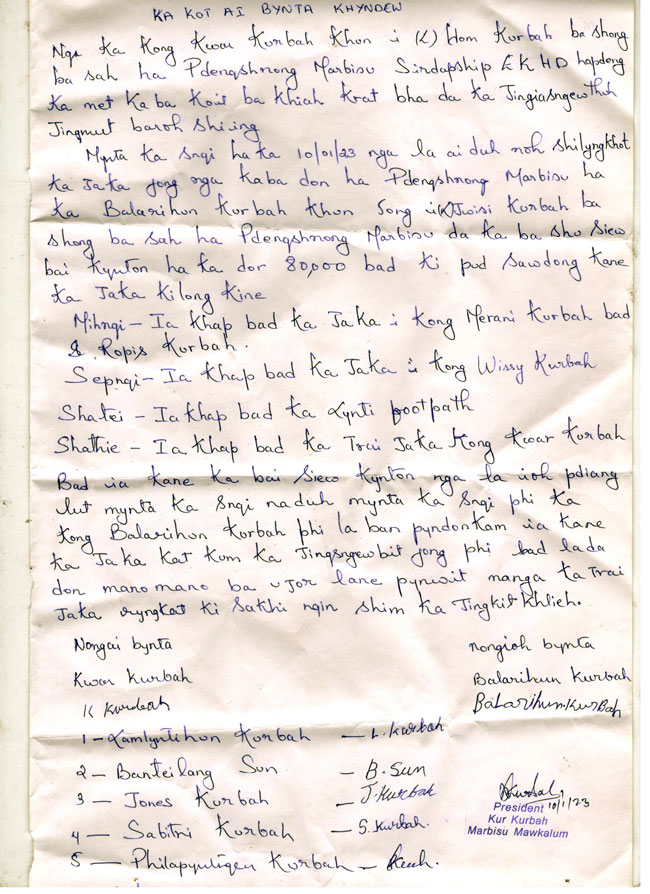 KA KOT AI BYNTA KHYNDEW
Nga Ka Kong Kwar Kurbah Khun i (L) Hom Kurbah ba shong
ba sah ha Pdengshnong Marbisu Sirdarship EKHD hapdeng
ka met kaba koit ba khiah krat bha da ka Jingiasngewthuh
Jingmut baroh shi ïing
Mynta ka sngi ha ka 10/01/23 nga la ai duh noh shilyngkhot
ka Jaka jong nga kaba don ha Pdengshnong Marbisu ha
ka Balarihun Kurbah Khun Jong i (L) Jwisi Kurbah ba
shong ba sah ha Pdengshnong Marbisu da ka ba shu siew
bai kynton ha ka dor 80,000 bad ki pud sawdong kane
ka Jaka ki long kine
Mihngi - Ia khap bad ka Jaka i Kong Merani Kurbah bad
& Ropis Kurbah.
Sepngi - Ia khap bad ka Jaka i Kong Wissy Kurbah
Shatei - Ia khap bad ka Lynti footpath
Shathie - Ia khap bad ka Trai Jaka Kong Kwar Kurbah
Bad ia kane ka bai siew kynton nga la ioh pdiang
lut mynta ka sngi naduh mynta ka sngi phi ka
Kong Balarihun Kurbah phi la ban pyndonkam ia kane
ka Jaka kat kum ka Jingsngewbit jong phi bad lada
don mano mano ba ujor lane pynwit nanga ka Trai
Jaka ryngkat ki sakhi ngin shim ka Jingkit khlieh.
Nongai bynta
nongioh bynta
Kwar Kurbah
Balarihun Kurbah
K Kurbah
Balarihun.Kurbah
1 - Lamlyntihun Kurbah - L. Kurbah
2 - Banteilang Sun - B. Sun
3 - Jones Kurbah - J. Kurbah
4 - Sabitri Kurbah - S. Kurbah.
5 - Philapyntiqen Kurbah -
President 10/1/23
Kur Kurbah
Marbisu Mawkalum